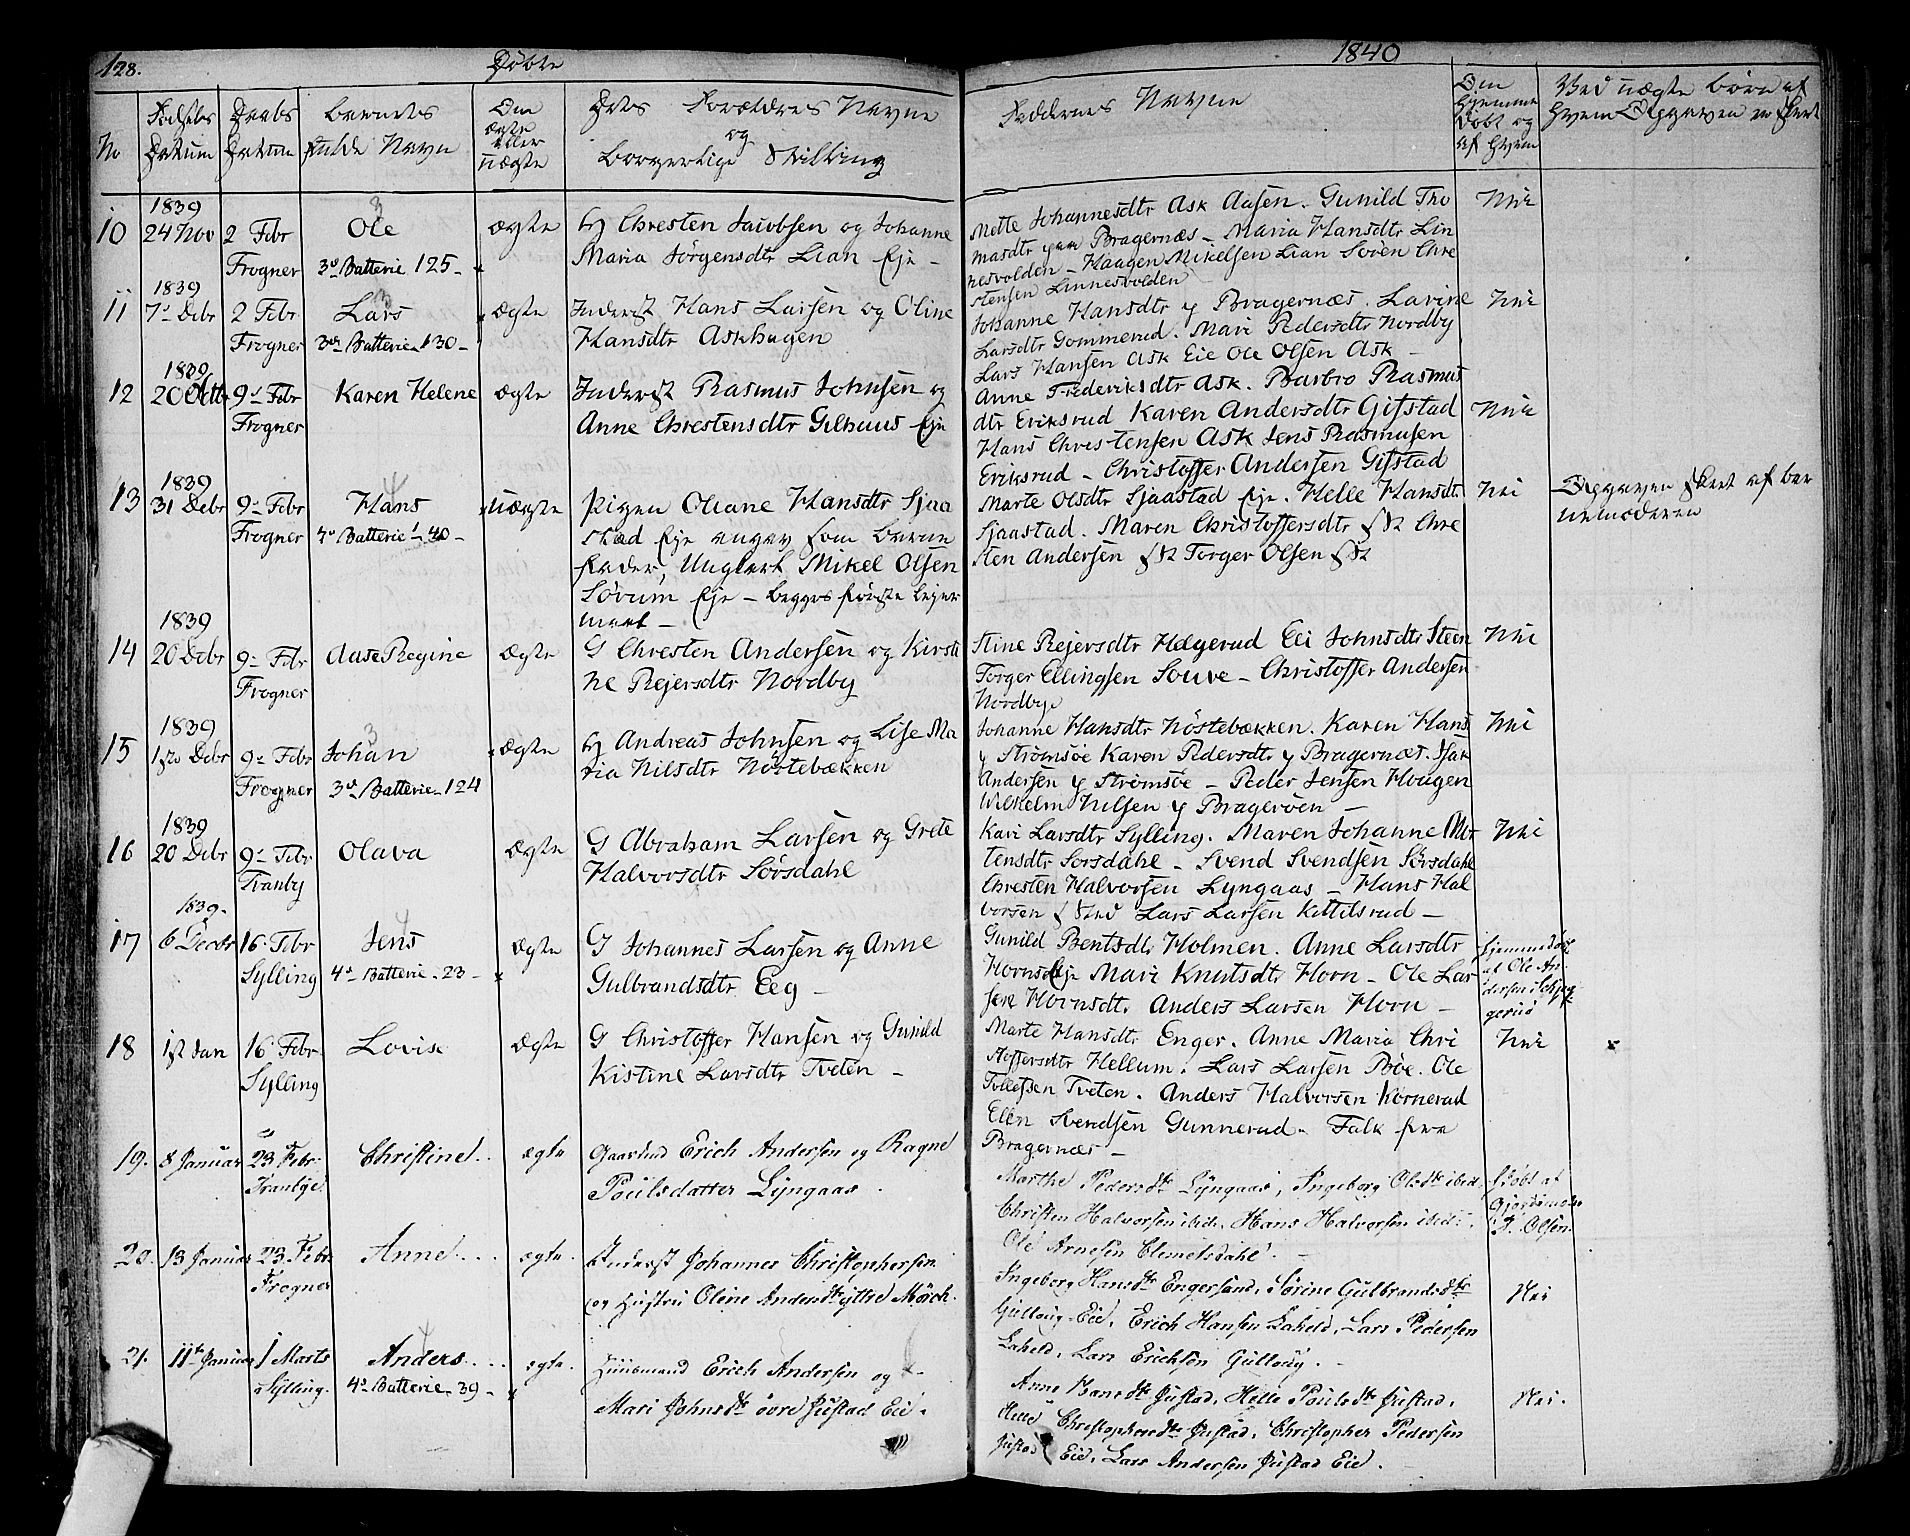 128. Døbte 1840
No
Fødsels Datum
Daabs Datum
Barnets fulde Navn
Om ægte eller uægte
Dets Forældres Navne og Borgerlige Stilling
Faddernes Navne
Om Hjemme Døbt og af Hvem
Ved uægte børn af Hvem Opgaven er skeet
10
1839
24 Nov
2 Febr
Frogner
3
Ole
3die Batterie 125 -
ægte
Chresten Jacobsen og Johanne
Maria Jørgensdtr Lian Eje -
Mette Johannesdtr Ask Aasen. Gunild Tho
masdtr paa Bragernæs - Maria Hansdtr Lin
nesvolden - Haagen Mikelsen Lian Søren Chre
stensen Linnesvolden
Nei
11
1839
7de Debr
2 Febr
Frogner
3
Lars
3die Batterie - 130 -
ægte
Inderst Hans Larsen og Oline
Hansdtr Askhagen
Johanne Hansdtr y Bragernæs. Lavine
Larsdtr Gommerud. Mari Pedersdtr Nordby
Lars Hansen Ask Eie Ole Olsen Ask -
Nei
12
1839
20 Octbr
9de Febr
Frogner
Karen Helene
ægte
Inderst Rasmus Johnsen og
Anne Chrestensdtr Gilhuus Eje
Anne Frederiksdtr Ask. Barbro Rasmus
dtr Eriksrud Karen Andersdtr Gifstad
Hans Christensen Ask Jens Rasmusen
Eriksrud - Christoffer Andersen Gifstad
Nei
13
1839
31 Debr
9de Febr
Frogner
4
Hans
4de Batterie - 40 -
uægte
Pigen Oliane Hansdtr Sjaa
stad Eje angav som barne
fader, Ungkarl Mikel Olsen
Sørum Eje - begges første lejer
maal -
Marte Olsdtr Sjaastad Eje. Helle Hansdtr
Sjaastad. Maren Christoffersdtr Chre
sten Andersen Torger Olsen
Nei
Opgaven skeet af bar
nemoderen
14
1839
20 Debr
9de Febr
Frogner
Aase Regine
ægte
G Chresten Andersen og Kirsti
ne Rejersdtr Nordby
Stine Rejersdtr Hægerud Eli Johnsdtr Steen
Torger Ellingsen Souve - Christoffer Andersen
Nordbye
Nei
15
1839
1ste Debr
9de Febr
Frogner
3
Johan
3die Batterie - 124
ægte
Andreas Johnsen og Lise Ma
ria Nilsdtr Nøstebækken
Johanne Hansdtr Nöstebækken. Karen Hans
y Strømsøe Karen Pedersdtr y Bragernæs. Isak
Andersen y Strømsøe - Peder Jensen Hougen
Wilhelm Nilsen y Bragerøen -
Nei
16
1839
20 Debr
9de Febr
Tranby
Olava
ægte
G Abraham Larsen og Grete
Halvorsdtr Sørsdahl
Kari Larsdtr Sylling. Maren Johanne Mor
tensdtr Sorsdahl - Svend Svendsen Sørsdahl
Chresten Halvorsen Lyngaas - Hans Hal
vorsen Lars Larsen Kittilsrud -
Nei
17
1839.
6 Decbr
16. Febr
Sylling
4
Jens
4de Batterie - 23 -
ægte
G Johannes Larsen og Anne
Gulbrandsdtr Eeg -
Gunild Bentsdtr Holmen. Anne Larsdtr
Hornseje Mari Knutsdtr Horn - Ole Lar
sen Hornsdt. Anders Larsen Horn -
Hjemmedøbt
af Ole An
dersen Skjeg
gerud
18
1st Jan
16 Febr
Sylling
Lovise
ægte
G Christoffer Hansen og Gunild
Kistine Larsdtr Tveten -
Marte Hansdtr Enger. Anne Maria Chri
stoffersdtr Hellum. Lars Larsen Bøe. Ole
Tollefsen Tveten. Anders Halvorsen Kørnerud
Elen Svendsen Gunnerud - Falk fra
Bragernæs -
Nei
19.
8 Januar
23 Febr.
Tranbye
Christine
ægte
Gaardmd Erich Andersen og Ragne
Poulsdatter Lyngaas.
Marthe Pedersdtr Lyngaas, Ingeborg Olsdtr ibid.,
Christen Halvorsen ibid., Hans Halvorsen ibid.,
Ole Arnesen Clemetsdahl. -
Hjdøbt af
Gjordemoder
Olsen
20.
13 Januar
23 Febr.
Frogner
Anne
ægte.
Inderst Johannes Christophersen
og Hustru Oline Andersdtr Yttre Mörch.
Ingeborg Hansdtr Engersand, Sörine Gulbrandsdtr
Gullaug Eie, Erich Hansen Lahell, Lars Pedersen
Lahell, Lars Erichsen Gullaug. -
Nei
21.
11te Januar
1 Marts
Sylling.
4
Anders
4de Batterie - 39 -
ægte.
Huusmand Erich Andersen og
Mari Johnsdtr övre Justad Eie.
Anne Hansdtr Justad, Helle Poulsdtr Justad,
Helle Christophersdtr Justad, Christopher Pedersen
Justad Eie, Lars Andersen Justad Eie.
Nei.